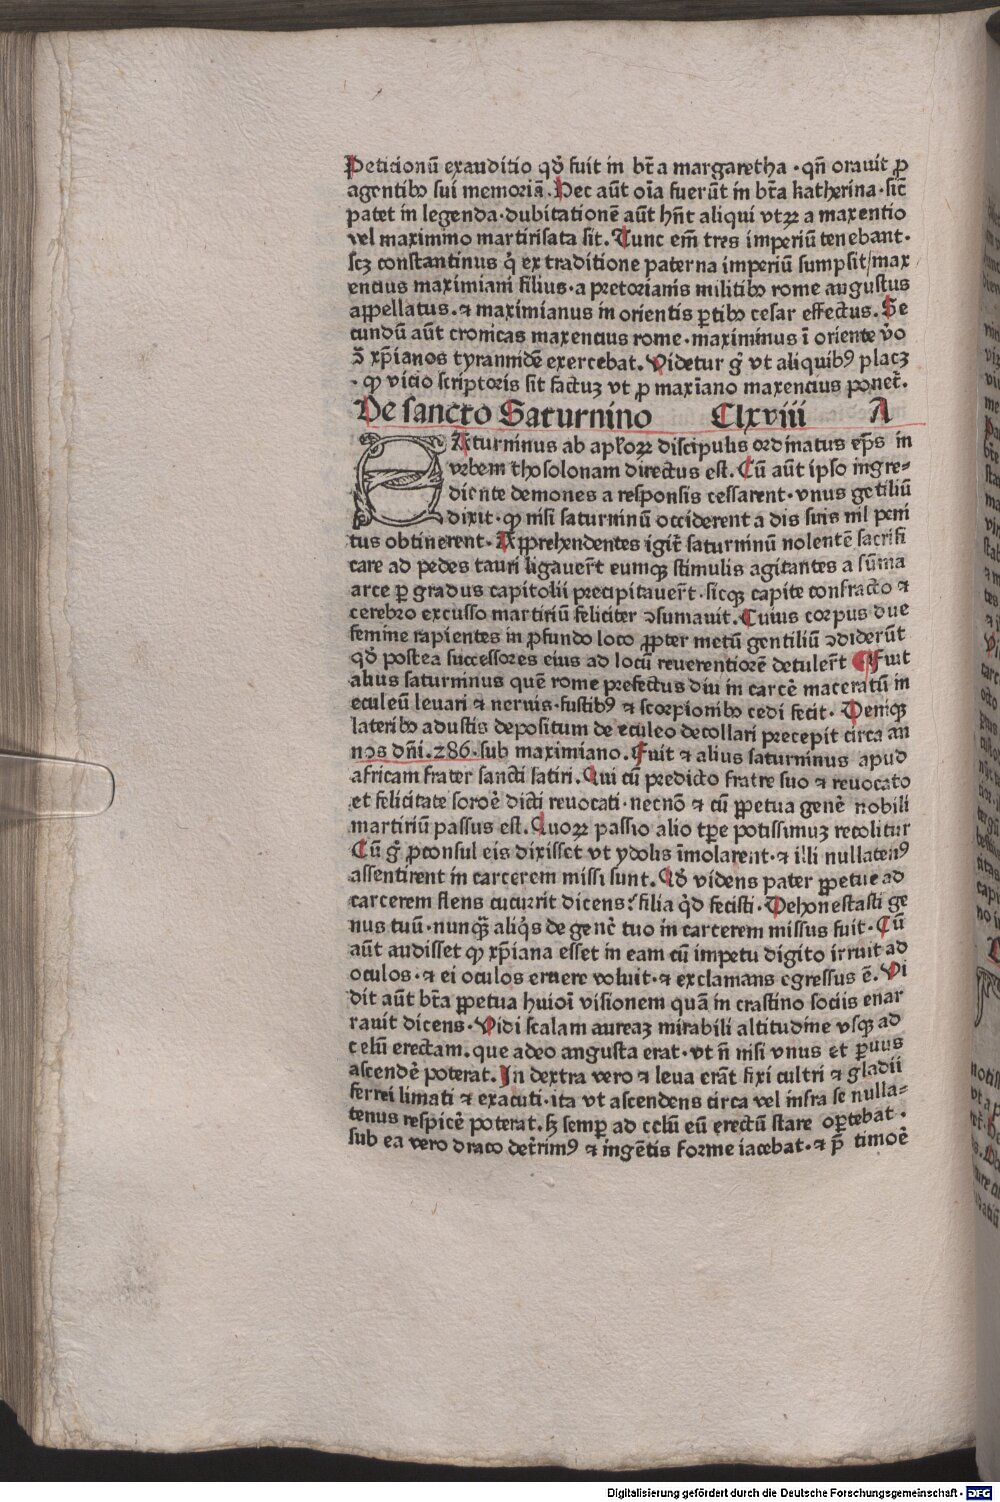 Peticionū exauditio qđ fuit in bt̄a margaretha · qn̄ orauit ꝓ
agentibꝰ sui memoriā. Hec aūt oīa fuerūt in bt̄a katherina · sic̄
patet in legenda · dubitationē aūt hn̄t aliqui vtꝝ a maxentio
vel maximino martirisata sit. Tunc em̄ tres imperiū tenebant ·
scꝫ constantinus q̇ ex traditione paterna imperiū sumpsit/max
encius maximiani filius · a pretorianis militibꝰ rome augustus
appellatus. ⁊ maximianus in orientis ꝑtibꝰ cesar effectus. Se
cundū aūt cronicas maxencius rome · maximinus ī oriente v̇o
ↄ̄ xp̄ianos tyrannidē exercebat. Videtur g̊ vt aliquibꝰ placꝫ
· ꝙ vicio scriptoris sit factuꝫ vt ꝓ maxīano maxencius ponet̄.
De sancto Saturnino Clxviii A
SAturninus ab apl'oꝝ discipulis ordinatus ep̄s in
vrbem tholosonam directus est. Cū aūt ipso ingre-
diente demones a responsis cessarent · vnus gētiliū
dixit · ꝙ nisi saturninū occiderent a dis suis nil peni
tus obtinerent. Apprehendentes igit̄ saturninū nolentē sacrifi
care ad pedes tauri ligauer̄t eumqꝫ stimulis agitantes a sūma
arce ꝑ gradus capitolii precipitauer̄t · sicqꝫ capite confracto ⁊
cerebro excusso martiriū feliciter ↄsumauit. Cuius corpus due
femine rapientes in ꝓfundo loco ꝓpter metū gentiliū ↄdiderūt
qđ postea successores eius ad locū reuerentiorē detuler̄t ¶ Fuit
alius saturninus quē rome prefectus diu in carcē maceratū in
eculeū leuari ⁊ neruis · fustibꝰ ⁊ scorpionibꝰ cedi fecit. Deniqꝫ
lateribꝰ adustis depositum de eculeo decollari precepit circa an
nos dn̄i. 286. sub maximiano. Fuit ⁊ alius saturninus apud
africam frater sancti satiri. Qui cū predicto fratre suo ⁊ reuocato
et felicitate soroē dicti reuocati · necnō ⁊ cū ꝑpetua genē nobili
martiriū passus est. Quoꝝ passio alio tp̄e potissimuꝫ recolitur
Cū g̊ ꝓconsul eis dixisset vt ydolis īmolarent · ⁊ illi nullatenꝰ
assentirent in carcerem missi sunt. Qđ videns pater ꝑpetue ad
carcerem flens cucurrit dicens: filia q̇d fecisti. Dehonestasti ge
nus tuū · nunqꝫ̄ aliq̇s de genē tuo in carcerem missus fuit. Cū
aūt audisset ꝙ xp̄iana esset in eam cū impetu digito irruit ad
oculos · ⁊ ei oculos eruere voluit · ⁊ exclamans egressus ē. Vi
dit aūt bt̄a ꝑpetua huiōi visionem quā in crastino sociis enar
rauit dicens. Vidi scalam aureaꝫ mirabili altitudine vsqꝫ ad
celū erectam. que adeo angusta erat · vt n̄ nisi vnus et ꝑuus
ascendē poterat. In dextra vero ⁊ leua erāt fixi cultri ⁊ gladii
ferrei limati ⁊ exacuti · ita vt ascendens circa vel infra se nulla-
tenus respicē poterat. sꝫ semꝑ ad celū eū erectū stare oꝑtebat ·
sub ea vero draco det̄rimꝰ ⁊ ingētis forme iacebat · ⁊ p̄ timoē
Digitalisierung gefördert durch die Deutsche Forschungsgemeinschaft - DFG